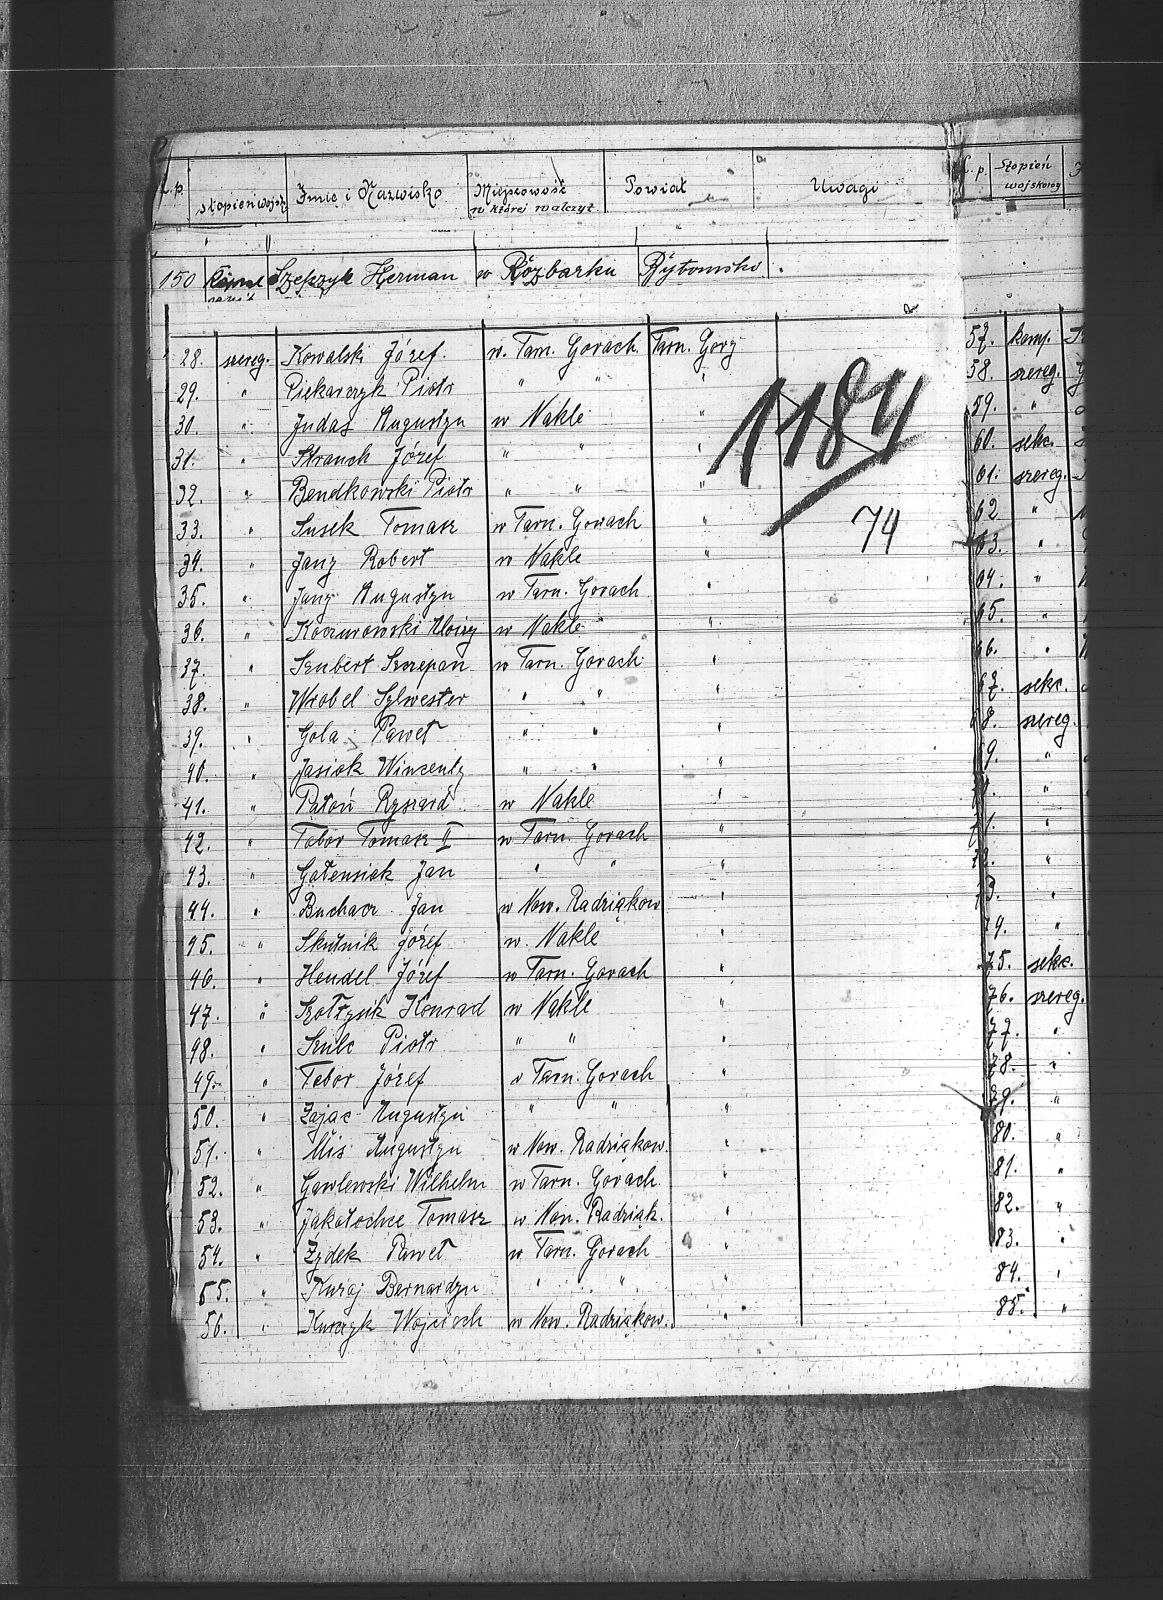 L.p. stopień wojsk. Imię i Nazwisko Miejscowość w której walczył Powiat Uwagi
150 Szepzyk Herman w Rozbarku Bytomsko
28. szereg. Kowalski Józef. w. Tarn. Gorach. Tarn. Gory
29. " Piekarczyk Piotr " " "
30. " Judas Augustyn w Nakle "
31. " Strauch Józef " " "
32. " Bendkowski Piotr " " "
33. " Susek Tomasz w Tarn. Gorach "
34. " Jany Robert w Nakle "
35. " Jany Augustyn w Tarn. Gorach "
36. " Koczurowski Aloizy w Nakle "
37. " Szubert Szczepan w Tarn. Gorach "
38. " Wrobel Sylwester " " "
39. " Gola Paweł " " "
40. " Jasiok Wincenty " " "
41. " Patoń Ryszard w Nakle "
42. " Tobor Tomasz II w Tarn. Gorach "
43. " Gatensiak Jan " " "
44. " Buchacz Jan w Now. Radziąkow "
45. " Skutnik Józef w. Nakle "
46. " Hendel Józef w Tarn. Gorach "
47. " Szoltysik Konrad w Nakle "
48. " Szulc Piotr " " "
49. " Tobor Józef w Tarn. Gorach "
50. " Zając Augustyn " " "
51. " Mis Augustyn w Now. Radziąkow. "
52. " Gawlewski Wilhelm w Tarn. Gorach. "
53. " Tomasz w Now. Radziąk. "
54. " Zydek Paweł w Tarn. Gorach "
55. " Kuraj Bernardyn " " "
56. " Kurczyk Wojciech w Now. Radziąkow. "
1184
74
L.p. Stopień wojskowy
57. komp.
58. szereg.
59. "
60. sekc.
61. szereg.
62 "
63. "
64. "
65. "
66. "
67. sekc.
68. szereg.
69. "
71. "
72. "
73. "
74. "
75. sekc.
76. szereg.
77. "
78. "
79. "
80. "
81. "
82. "
83. "
84. "
85. "